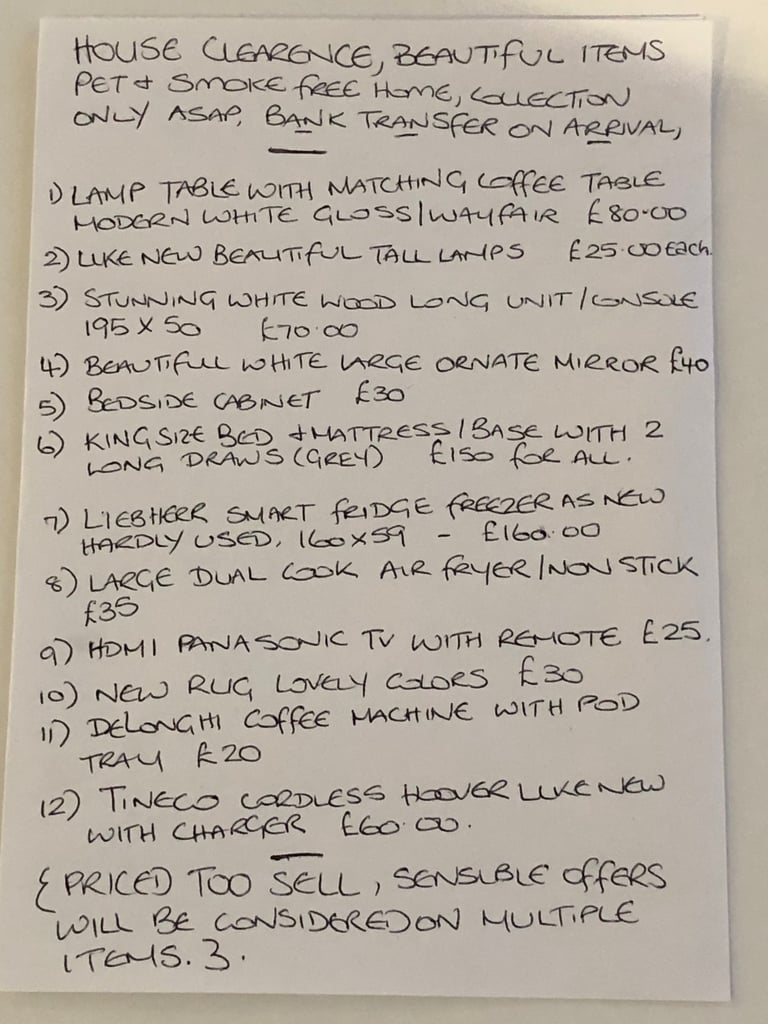 HOUSE CLEARENCE, BEAUTIFUL ITEMS
PET & SMOKE FREE HOME, COLLECTION
ONLY ASAP, BANK TRANSFER ON ARRIVAL,
1) LAMP TABLE WITH MATCHING COFFEE TABLE
MODERN WHITE GLOSS/WAYFAIR £80.00
2) LIKE NEW BEAUTIFUL TALL LAMPS £25.00 EACH.
3) STUNNING WHITE WOOD LONG UNIT/CONSOLE
195 X 50 £70.00
4) BEAUTIFULL WHITE LARGE ORNATE MIRROR £40
5) BEDSIDE CABINET £30
6) KINGSIZE BED & MATTRESS/BASE WITH 2
LONG DRAWS (GREY) £150 FOR ALL.
7) LIEBHERR SMART FRIDGE FREEZER AS NEW
HARDLY USED, 160 X 59 - £160.00
8) LARGE DUAL COOK AIR FRYER/NON STICK
£35
9) HDMI PANASONIC TV WITH REMOTE £25.
10) NEW RUG LOVELY COLORS £30
11) DELONGHI COFFEE MACHINE WITH POD
TRAY £20
12) TINECO CORDLESS HOOVER LIKE NEW
WITH CHARGER £60.00.
{ PRICED TOO SELL, SENSIBLE OFFERS
WILL BE CONSIDERED ON MULTIPLE
ITEMS. }.